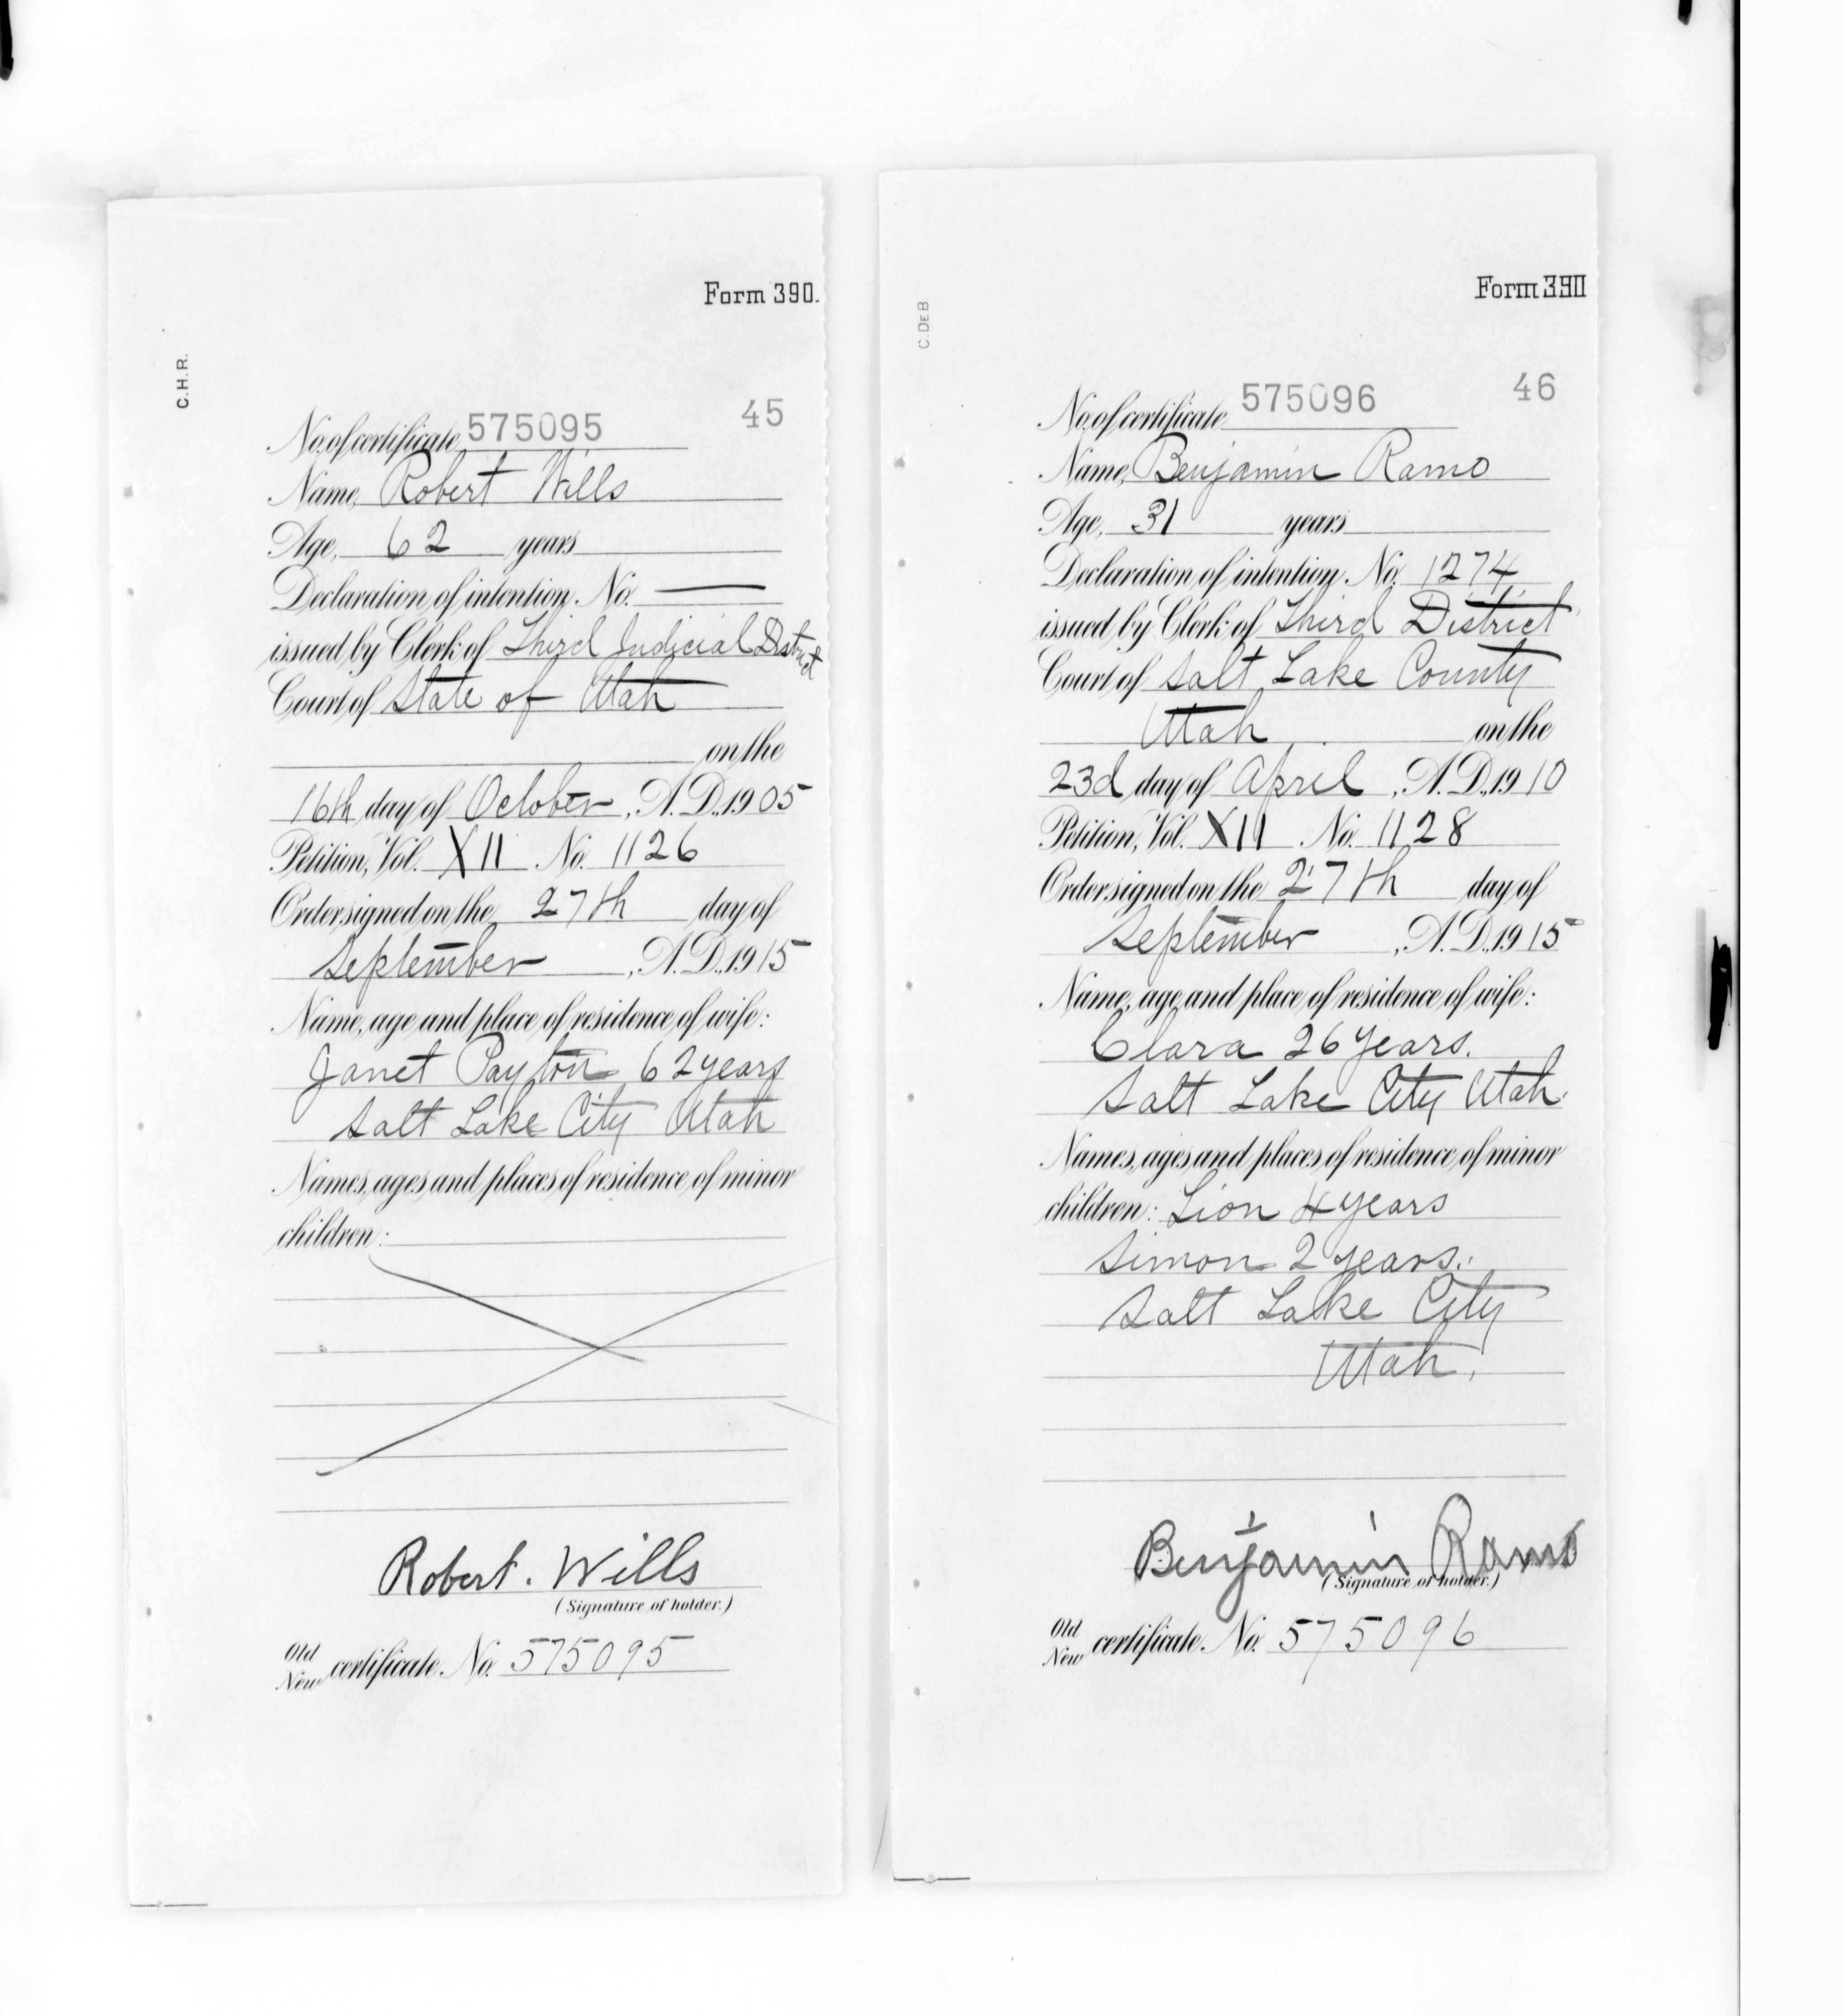 Form 390.
C.H.R.
45
No. of certificate, 575095
Name, Robert Wills
Age, 62 years
Declaration of intention, No. —
issued by Clerk of Third Judicial District
Court of State of Utah
on the
16th day of October, A.D. 1905
Petition, Vol. XII No. 1126
Order signed on the 27th day of
September, A.D. 1915
Name, age and place of residence of wife:
Janet Payton 62 years
Salt Lake City Utah
Names, ages and places of residence of minor
children:
Robert. Wills
(Signature of holder.)
Old
New certificate No. 575095
Form 390
C.DEB
46
No. of certificate 575096
Name, Benjamin Ramo
Age, 31 years
Declaration of intention, No. 1274
issued by Clerk of Third District
Court of Salt Lake County
Utah on the
23d day of April, A.D. 1910
Petition, Vol. XII No. 1128
Order signed on the 27th day of
September, A.D. 1915
Name, age and place of residence of wife:
Clara 26 years.
Salt Lake City Utah.
Names, ages and places of residence of minor
children: Lion 4 years
Simon 2 years.
Salt Lake City
Utah.
Benjamin Ramo
(Signature of holder.)
Old
New certificate No. 575096